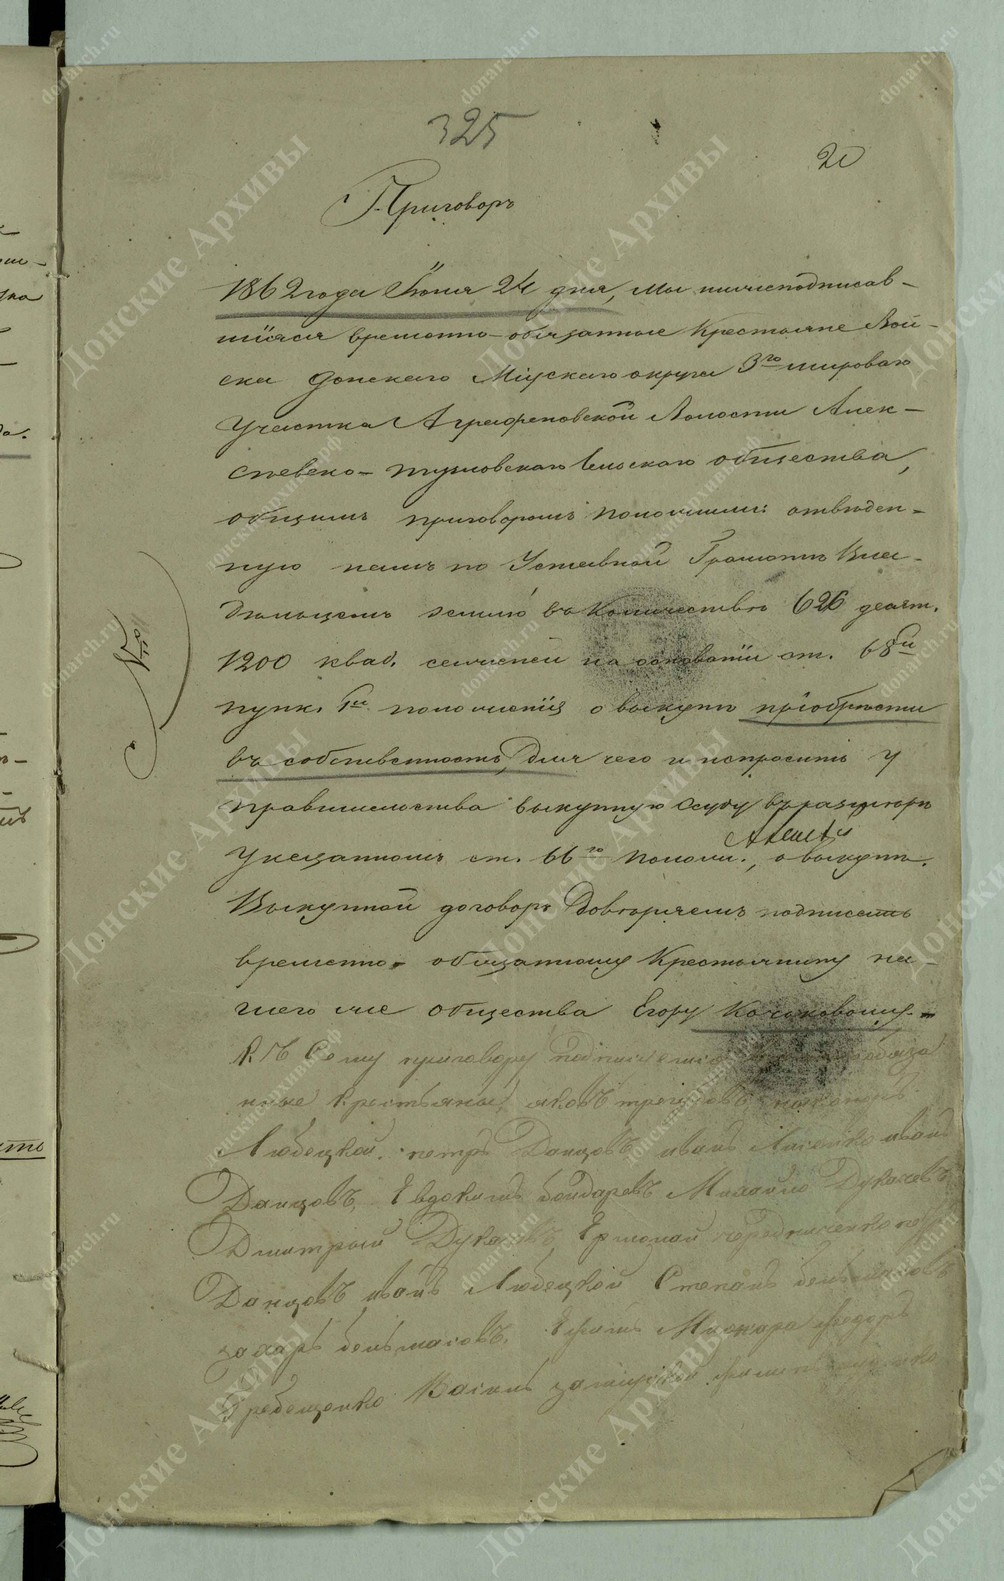 325
20
Приговоръ
1862 года Iюня 24 дня, мы нижеподписав-
шiяся временно-обязанные Крестьяне Вой-
ска Донскаго Мiускаго округа 3го мироваго
Участка Аграфеновской Волости Алек-
сеевско-Тузловскаго Сельскаго общества,
общимъ приговоромъ положили: отведен-
ную намъ по Уставной Грамотѣ Вла-
дѣльцемъ землю въ Количествѣ 626 десят.
1200 квад. саженей на основанiи ст. 68й
пунк. 1й положенiя о выкупѣ прiобрѣсти
въ собственность, для чего и испросить у
правительства выкупную ссуду въ размѣрѣ
Указанномъ ст. 66го полож., о выкупѣ.
Выкупной договоръ Довѣряемъ подписать
временно-обязанному Крестьянину на-
шего же общества Егору
Къ Сему приговору
нные Крестьяны, яковъ
Любецкой. петръ Данцовъ иванъ Лисенко иванъ
Данцовъ, Евдокимъ бондаревъ Михайло Дукачевъ
Дмитрый Ермолай чередниченко
Данцовъ иванъ Любецкой Степанъ бельмасовъ
захаръ бельмасовъ. федоръ
Гребещенко Василь
Донские Архивы
donarch.ru
донскиеархивы.рф